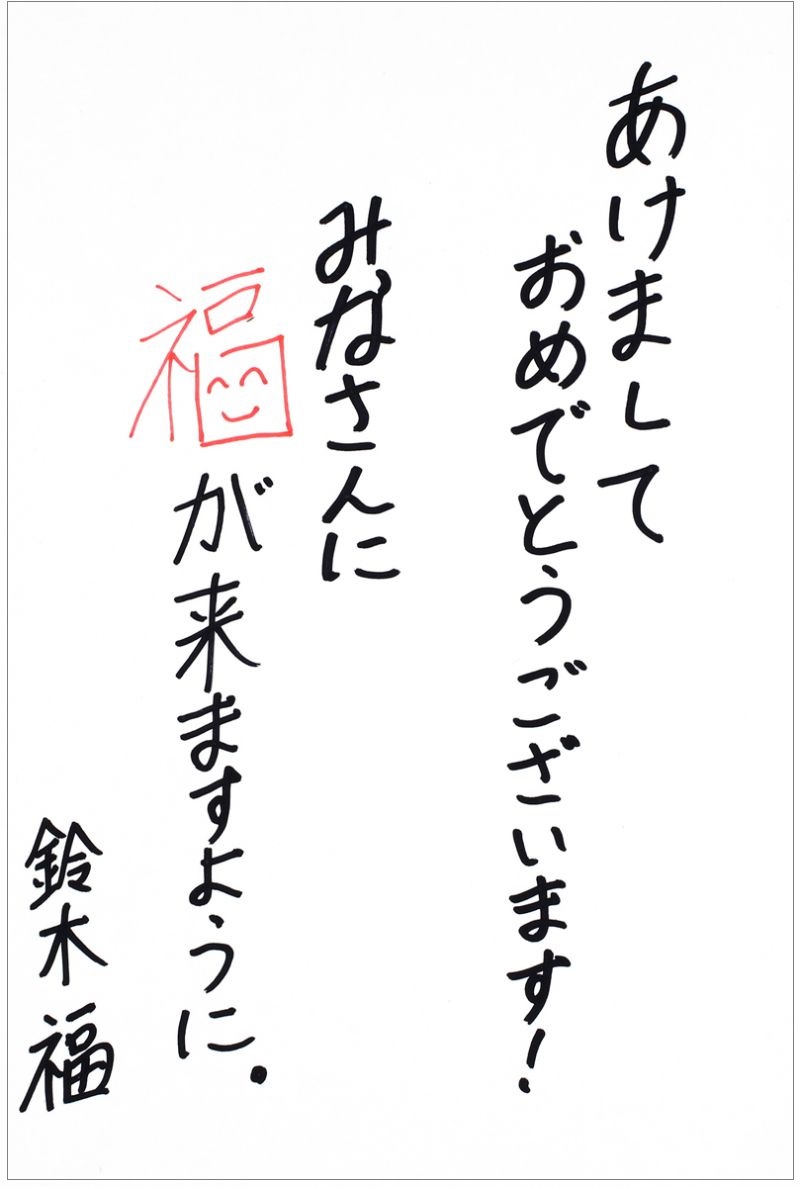 あけまして
おめでとうございます!
みなさんに
福が来ますように。
鈴木福